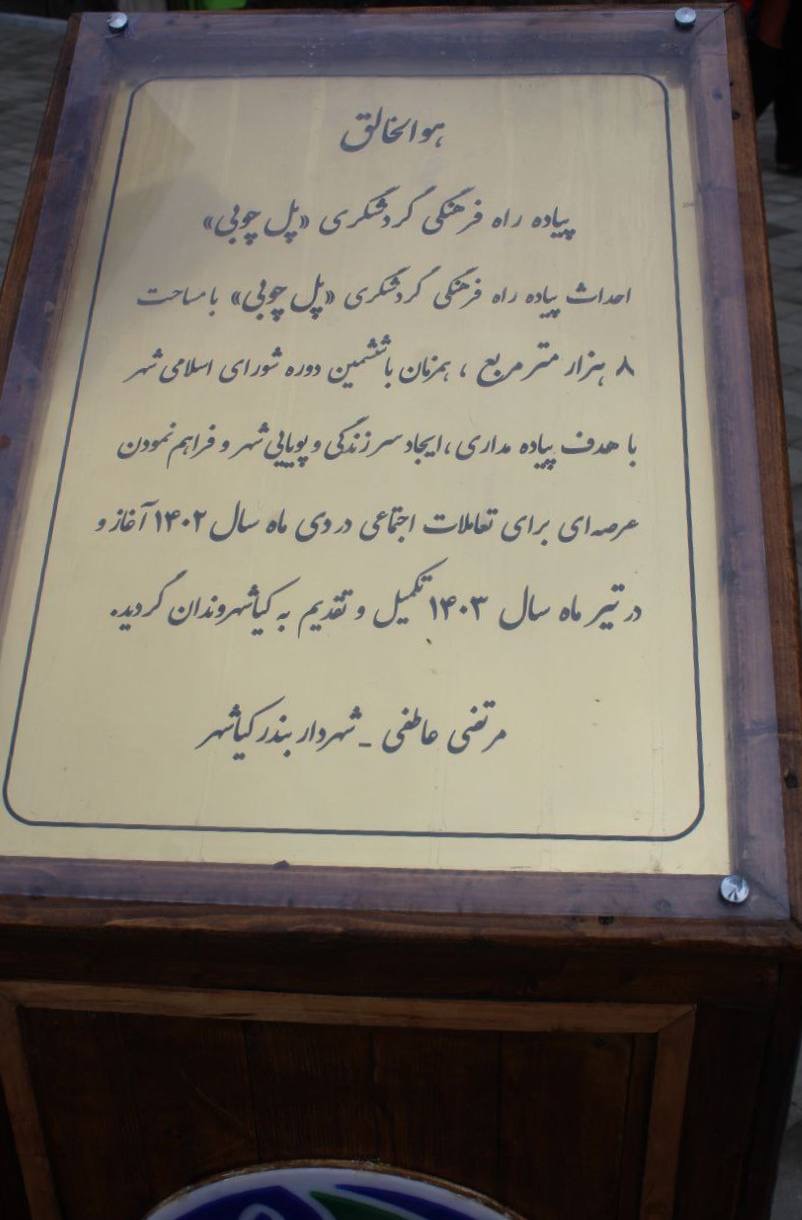 هوالخالق
پیاده راه فرهنگی گردشگری «پل چوبی»
احداث پیاده راه فرهنگی گردشگری «پل چوبی» با مساحت
۸ هزار متر مربع ، همزمان با ششمین دوره شورای اسلامی شهر
با هدف پیاده مداری ، ایجاد سرزندگی و پویایی شهر و فراهم نمودن
عرصه ای برای تعاملات اجتماعی در دی ماه سال ۱۴۰۲ آغاز و
در تیر ماه سال ۱۴۰۳ تکمیل و تقدیم به کیاشهروندان گردید.
مرتضی عاطفی - شهردار بندر کیاشهر